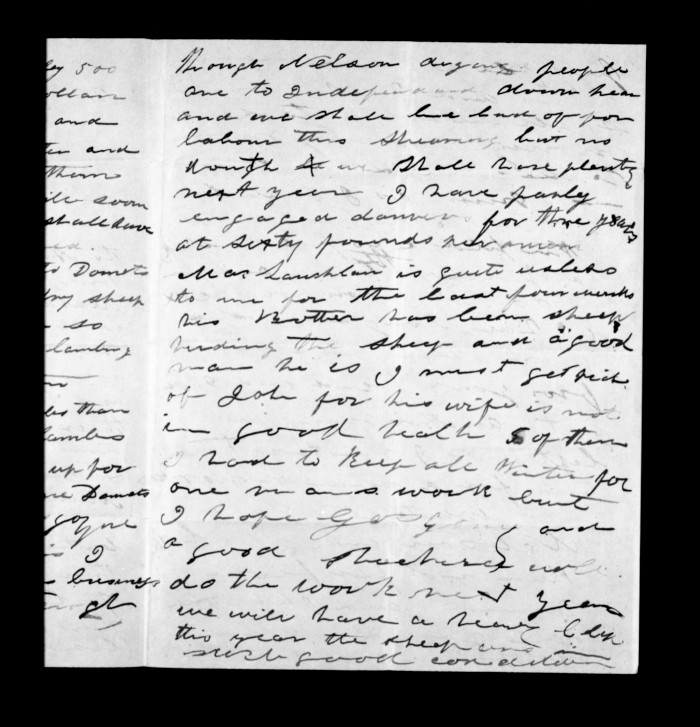 ley 500
ollars
and
ter and
them
ile soon
shall have
to Domets
dry sheep
so
lambing
les than
lambs
up for
Domets
I
business
though Nelson people
are to Independant down hear
and we shall be bad of for
labour this shearing but no
douth we shall have plenty
next year I have partly
engaged for three years
at sixty pounds per
MacLauchlan is quite usless
to me for the last four weeks
his Brother has been sheep
hinding the sheep and a good
man he is I must get rid
of Joh for his wife is not
in good health 5 of them
I had to Keep all Winter for
one mans work but
I hope and
a good will
do the work next year
we will have a heavy Clip
this year the sheep
such good condition